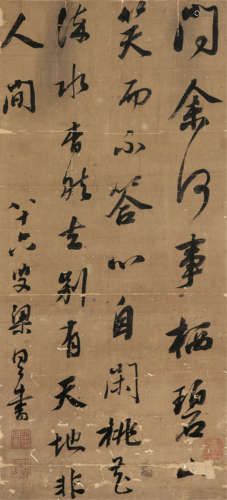 問余何事栖碧山
笑而不答心自閑桃花
流水杳然去別有天地非
人間
八十六叟梁同書